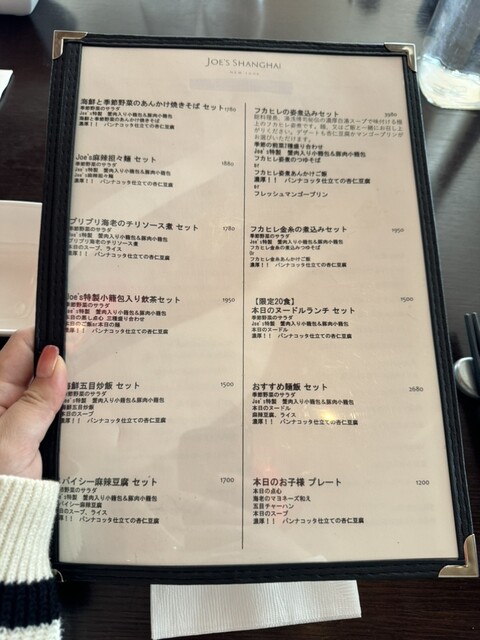 JOE'S SHANGHAI
NEW YORK
海鮮と季節野菜のあんかけ焼きそば セット1780
季節野菜のサラダ
Joe's特製 蟹肉入り小籠包&豚肉小籠包
海鮮と季節野菜のあんかけ焼きそば
濃厚!! パンナコッタ仕立ての杏仁豆腐
Joe's麻辣担々麺 セット 1880
季節野菜のサラダ
Joe's特製 蟹肉入り小籠包&豚肉小籠包
Joe's麻辣担々麺
濃厚!! パンナコッタ仕立ての杏仁豆腐
プリプリ海老のチリソース煮 セット 1780
季節野菜のサラダ
Joe's特製 蟹肉入り小籠包&豚肉小籠包
プリプリ海老のチリソース煮
本日のスープ、ライス
濃厚!! パンナコッタ仕立ての杏仁豆腐
Joe's特製小籠包入り飲茶セット 1950
季節野菜のサラダ
Joe's特製 蟹肉入り小籠包&豚肉小籠包
本日の蒸し点心 三種盛り合わせ
本日のご飯or本日の麺
濃厚!! パンナコッタ仕立ての杏仁豆腐
海鮮五目炒飯 セット 1500
季節野菜のサラダ
Joe's特製 蟹肉入り小籠包&豚肉小籠包
海鮮五目炒飯
本日のスープ
濃厚!! パンナコッタ仕立ての杏仁豆腐
スパイシー麻辣豆腐 セット 1700
季節野菜のサラダ
Joe's特製 蟹肉入り小籠包&豚肉小籠包
スパイシー麻辣豆腐
本日のスープ、ライス
濃厚!! パンナコッタ仕立ての杏仁豆腐
フカヒレの姿煮込みセット 3980
上のフカヒレ姿煮です。麺、又はご飯と一緒にお召し上
がりください。デザートも杏仁豆腐かマンゴープリンが
お選びいただけます。
季節の前菜2種盛り合わせ
Joe's特製 蟹肉入り小籠包&豚肉小籠包
フカヒレ姿煮のつゆそば
or
フカヒレ姿煮あんかけご飯
濃厚!! パンナコッタ仕立ての杏仁豆腐
or
フレッシュマンゴープリン
フカヒレ金糸の煮込みセット 1950
季節野菜のサラダ
Joe's特製 蟹肉入り小籠包&豚肉小籠包
フカヒレ金糸の煮込みつゆそば
Or
フカヒレ金糸あんかけご飯
濃厚!! パンナコッタ仕立ての杏仁豆腐
【限定20食】 1500
本日のヌードルランチ セット
季節野菜のサラダ
Joe's特製 蟹肉入り小籠包&豚肉小籠包
本日のヌードル
濃厚!! パンナコッタ仕立ての杏仁豆腐
おすすめ麺飯 セット 2680
季節野菜のサラダ
Joe's特製 蟹肉入り小籠包&豚肉小籠包
本日のヌードル
麻辣豆腐、ライス
濃厚!! パンナコッタ仕立ての杏仁豆腐
本日のお子様 プレート 1200
本日の点心
海老のマヨネーズ和え
五目チャーハン
本日のスープ
濃厚!! パンナコッタ仕立ての杏仁豆腐